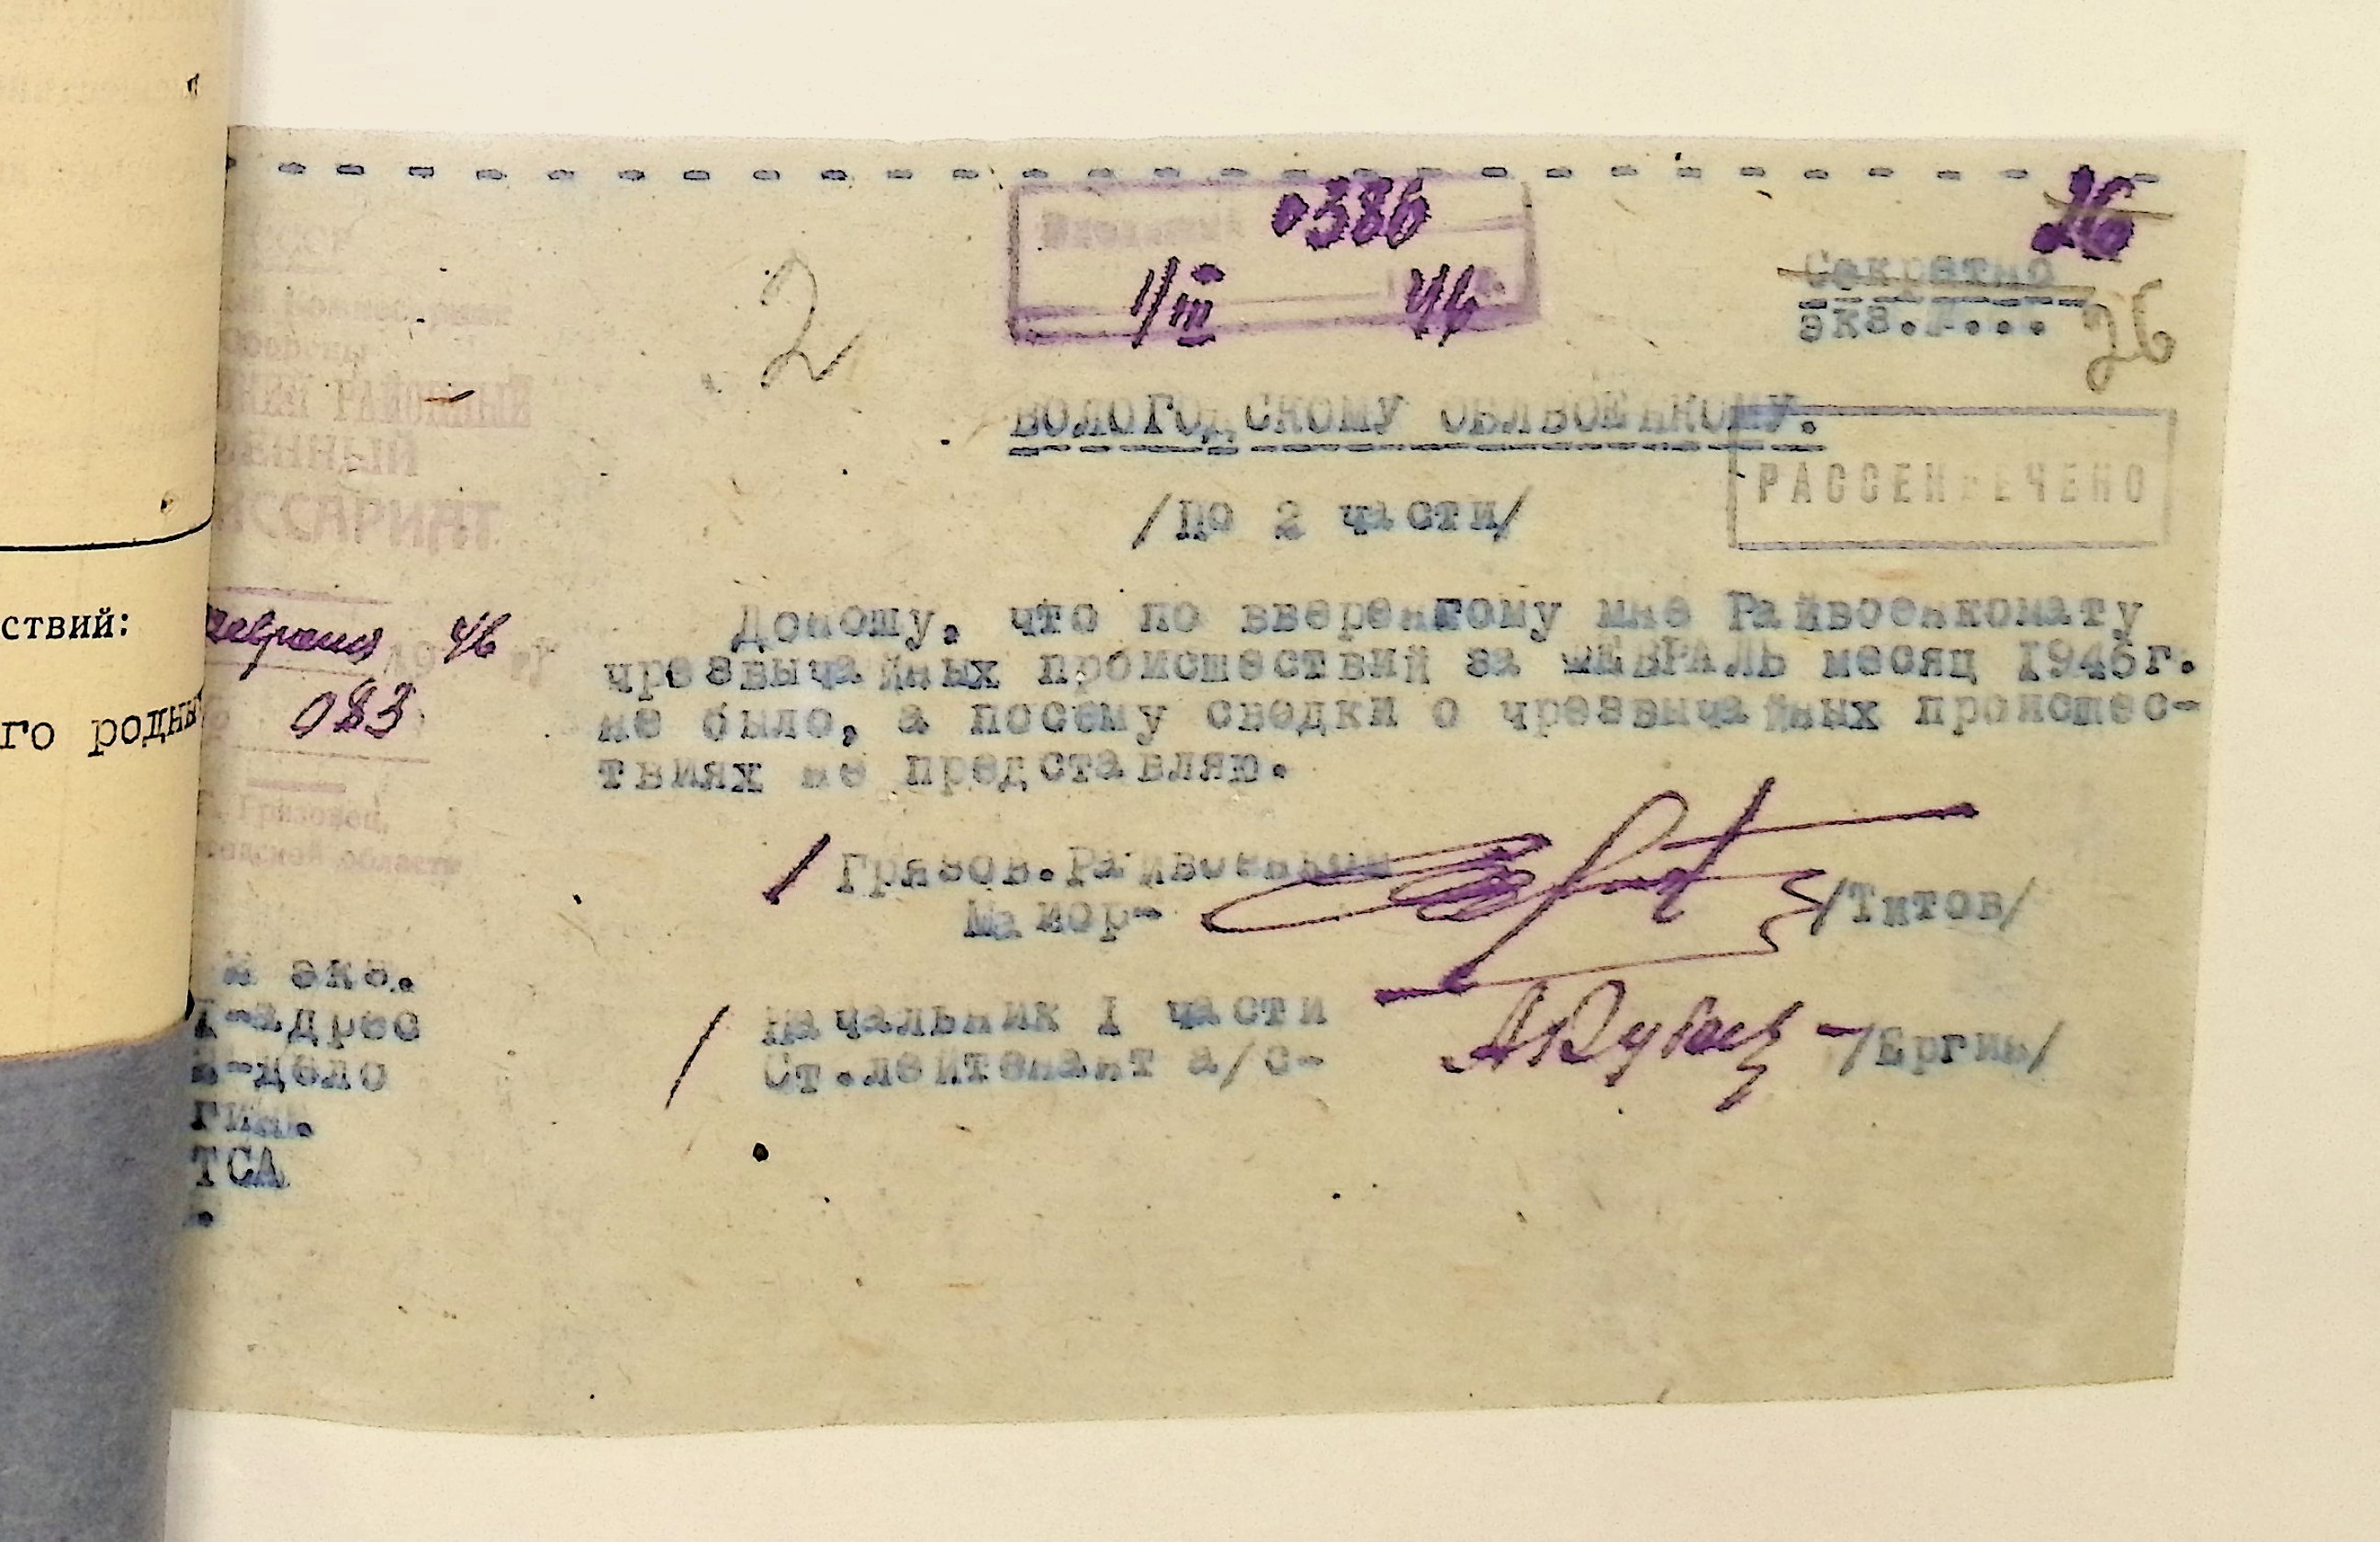 ствий:
го родны
0386
1/III 46
26
Секретно
экз.№...
26
2
ВОЛОГОДСКОМУ ОБЛВОЕНКОМУ.
РАССЕКРЕЧЕНО
/По 2 части/
РАЙОННЫЙ
ЕННЫЙ
ССАРИАТ
февраля 1946 г.
083
Грязовец,
области
Доношу, что по вверенному мне Райвоенкомату
чрезвычайных происшествий за ФЕВРАЛЬ месяц 1946г.
не было, а посему сводки о чрезвычайных происшес-
твиях не представляю.
Грязов.Райвоенком
Майор- /Титов/
Начальник I части
Ст.лейтенант а/с- /Ергин/
экз.
I-адрес
-дело
гин.
ТСА